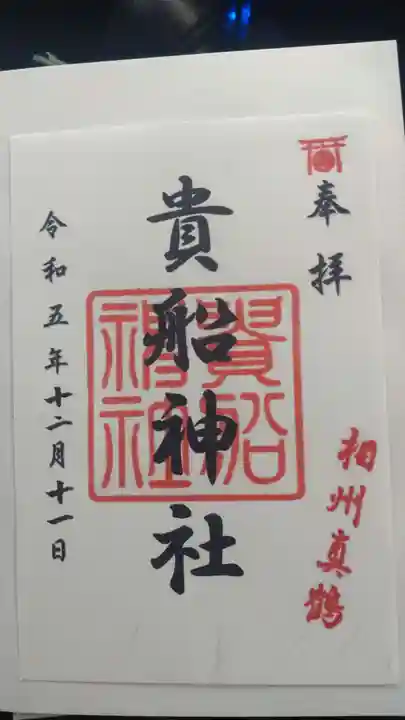 奉拝
相州真鶴
貴船神社
貴船
神社
令和五年十二月十一日